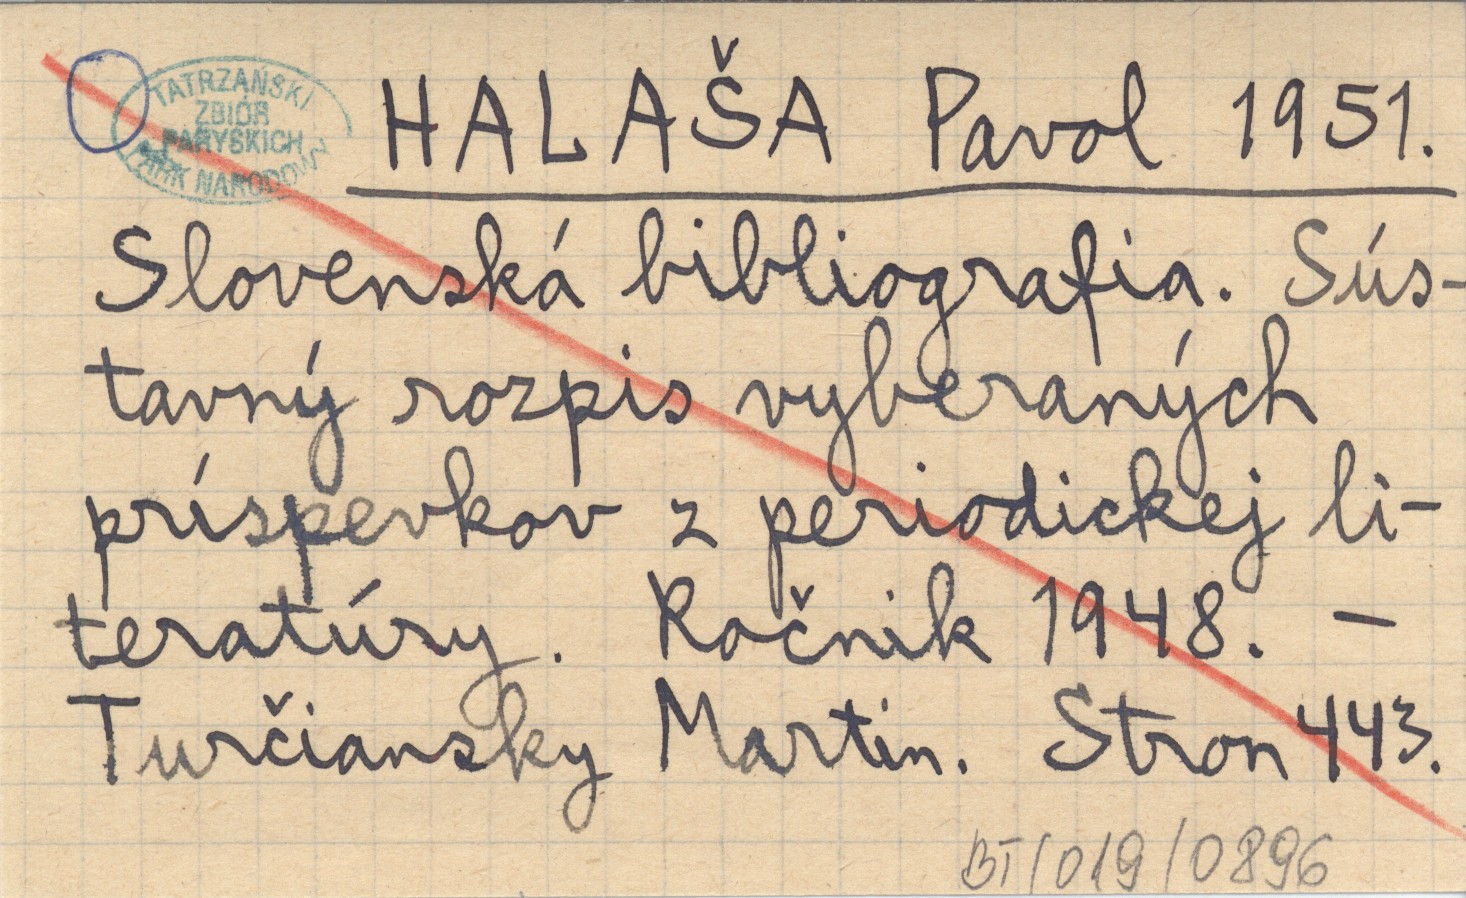 TATRZAŃSKI
ZBIÓR
PARYSKICH
PARK NARODOWY
HALAŠA Pavol 1951.
Slovenská bibliografia. Sús-
tavný rozpis vyberaných
príspevkov z periodickej li-
teratúry. Ročnik 1948. –
Turčiansky Martin. Stron 443.
BT/019/0896